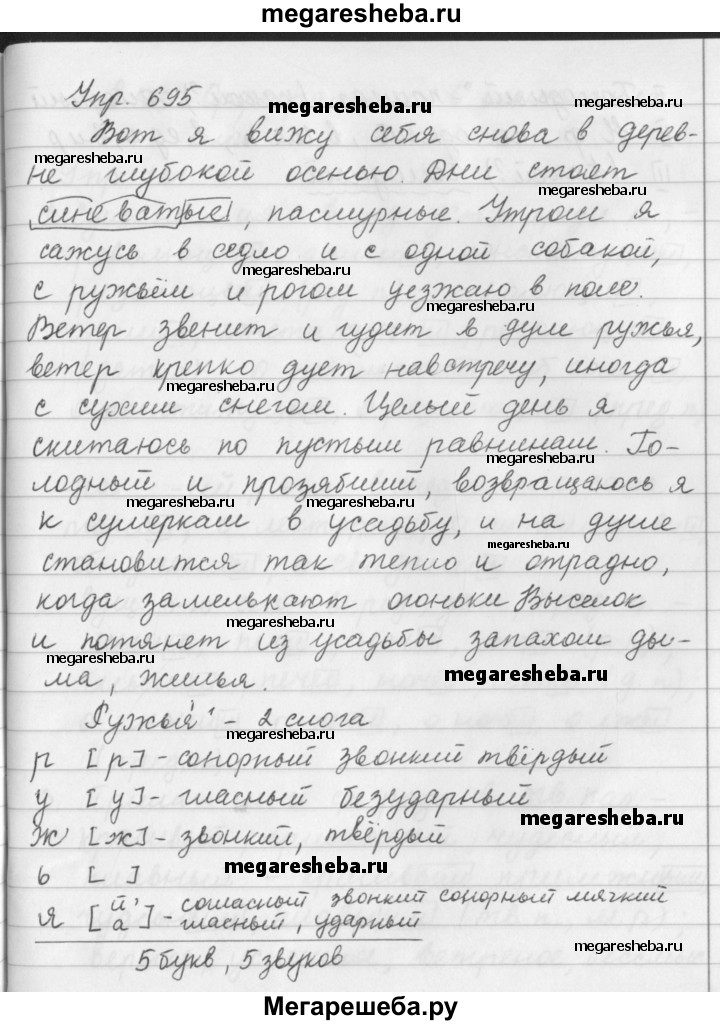 megaresheba.ru
Упр. 695
megaresheba.ru
Вот я вижу себя снова в дерев-
megaresheba.ru
не глубокой осенью. Дни стоят
megaresheba.ru
синеватые, пасмурные. Утром я
сажусь в седло и с одной собакой,
megaresheba.ru
с ружьём и рогом уезжаю в поле.
megaresheba.ru
Ветер звенит и гудит в дуле ружья,
ветер крепко дует навстречу, иногда
megaresheba.ru
с сухим снегом. Целый день я
скитаюсь по пустым равнинам. Го-
megaresheba.ru
лодный и прозябший, возвращаюсь я
megaresheba.ru megaresheba.ru
к сумеркам в усадьбу, и на душе
megaresheba.ru
становится так тепло и отрадно,
когда замелькают огоньки Выселок
megaresheba.ru
и потянет из усадьбы запахом ды-
megaresheba.ru megaresheba.ru
ма, жилья.
Ружья - 2 слога
megaresheba.ru
р [р] - сонорный звонкий твёрдый
у [у] - гласный безударный
megaresheba.ru
ж [ж] - звонкий, твёрдый
ь [ ]
megaresheba.ru
я [й' - согласный звонкий сонорный мягкий
а] - гласный, ударный
5 букв, 5 звуков
megaresheba.ru
Мегарешеба.ру